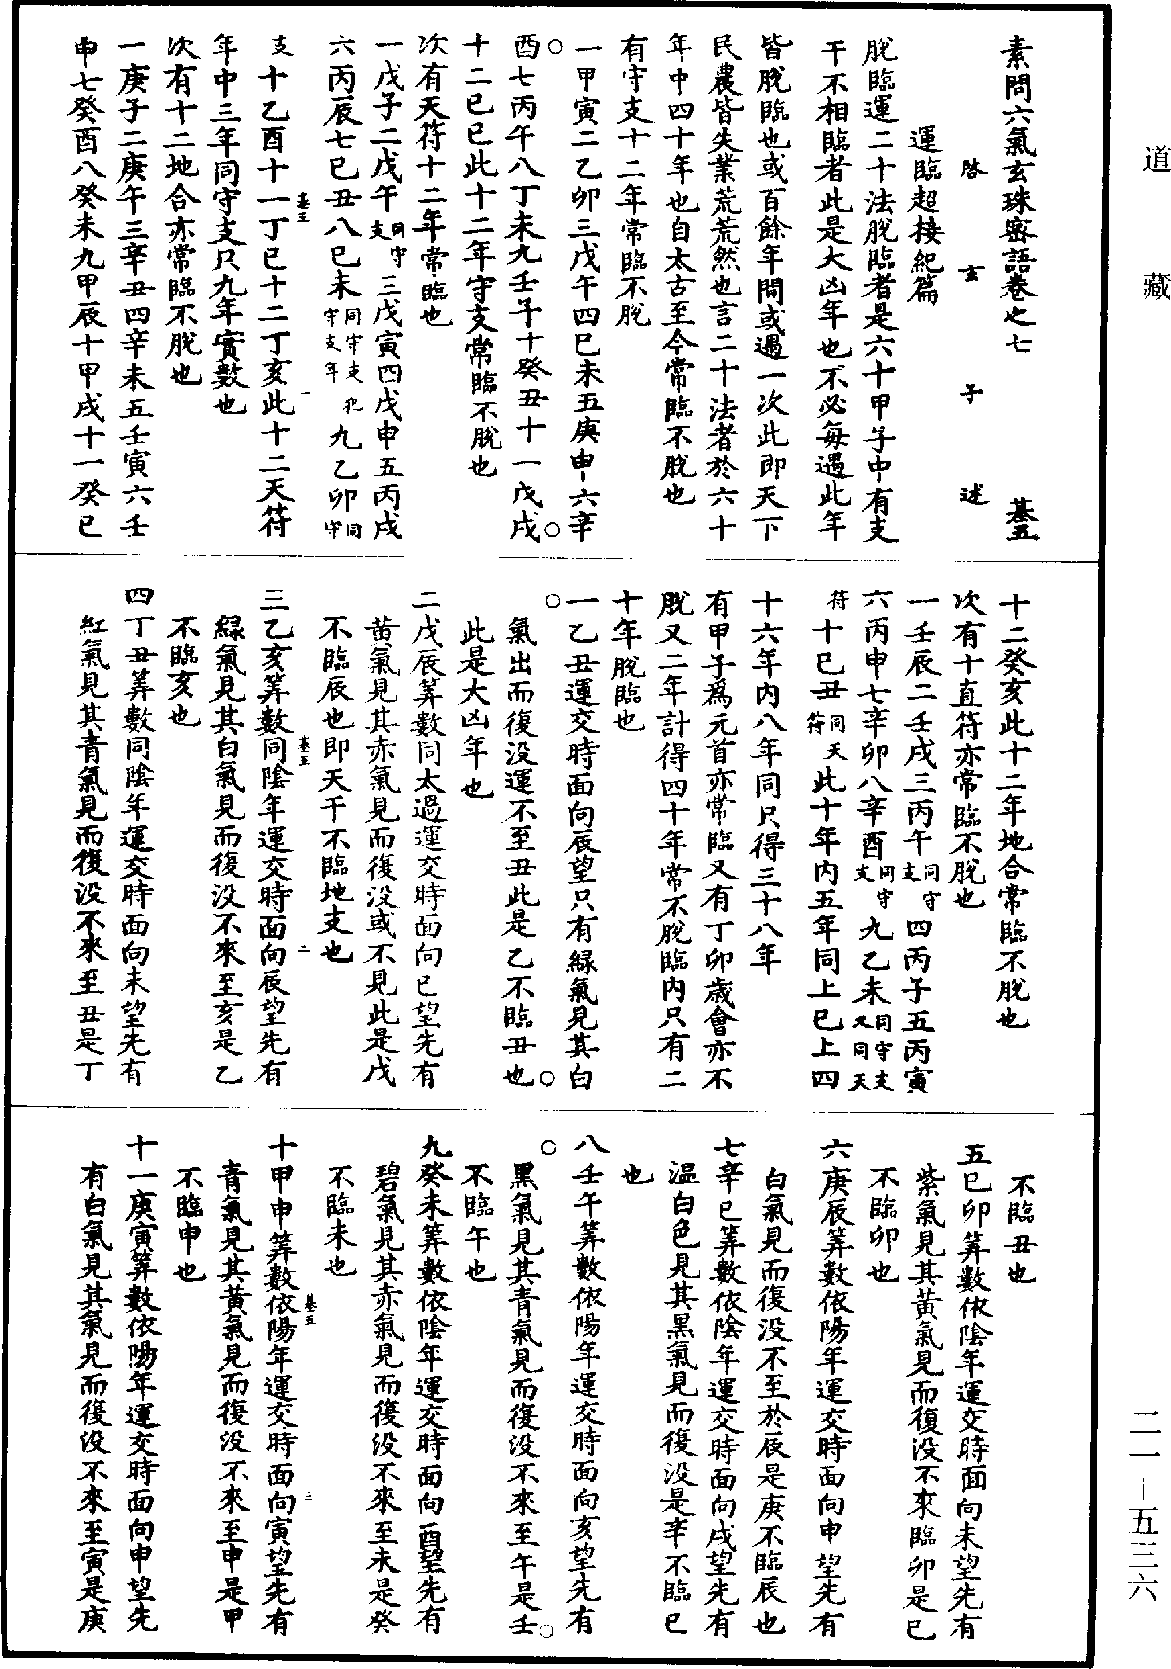 道藏
素問六氣玄珠密語卷之七　基五
啓玄子述
運臨超接紀篇
脫臨運二十法脫臨者是六十甲子中有支
干不相臨者此是大凶年也不必每遇此年
皆脫臨也或百餘年間或遇一次此即天下
民農皆失業荒荒然也言二十法者於六十
年中四十年也自太古至今常臨不脫也
有守支十二年常臨不脫
一甲寅二乙卯三戊午四巳未五庚申六辛
酉七丙午八丁未九壬子十癸丑十一戊戌
十二巳巳此十二年守支常臨不脫也
次有天符十二年常臨也
一戊子二戊午同守支三戊寅四戊申五丙戌
六丙辰七巳丑八巳未同守支犯守支年九乙卯同守
支十乙酉十一丁巳十二丁亥此十二天符
年中三年同守支只九年實數也
次有十二地合亦常臨不脫也
一庚子二庚午三辛丑四辛未五壬寅六壬
申七癸酉八癸未九甲辰十甲戌十一癸巳
基五　一
十二癸亥此十二年地合常臨不脫也
次有十直符亦常臨不脫也
一壬辰二壬戌三丙午同守支四丙子五丙寅
六丙申七辛卯八辛酉同守支九乙未同守支又同天
符十巳丑同天符此十年內五年同上巳上四
十六年內八年同只得三十八年
有甲子爲元首亦常臨又有丁卯歲會亦不
脫又二年計得四十年常不脫臨內只有二
十年脫臨也
一乙丑運交時面向辰望只有綠氣見其白
氣出而復没運不至丑此是乙不臨丑也
此是大凶年也
二戊辰筭數同太過運交時面向巳望先有
黃氣見其赤氣見而復没或不見此是戊
不臨辰也即天干不臨地支也
三乙亥筭數同陰年運交時面向辰望先有
綠氣見其白氣見而復没不來至亥是乙
不臨亥也
四丁丑筭數同陰年運交時面向未望先有
紅氣見其青氣見而復没不來至丑是丁
基五　二
不臨丑也
五巳卯筭數依陰年運交時面向未望先有
紫氣見其黃氣見而復没不來臨卯是巳
不臨卯也
六庚辰筭數依陽年運交時面向申望先有
白氣見而復没不至於辰是庚不臨辰也
七辛巳筭數依陰年運交時面向戌望先有
溫白色見其黑氣見而復没是辛不臨巳
也
八壬午筭數依陽年運交時面向亥望先有
黑氣見其青氣見而復没不來至午是壬
不臨午也
九癸未筭數依陰年運交時面向酉望先有
碧氣見其赤氣見而復没不來至未是癸
不臨未也
十甲申筭數依陽年運交時面向寅望先有
青氣見其黃氣見而復没不來至申是甲
不臨申也
十一庚寅筭數依陽年運交時面向申望先
有白氣見其氣見而復没不來至寅是庚
基五　三
二一—五三六